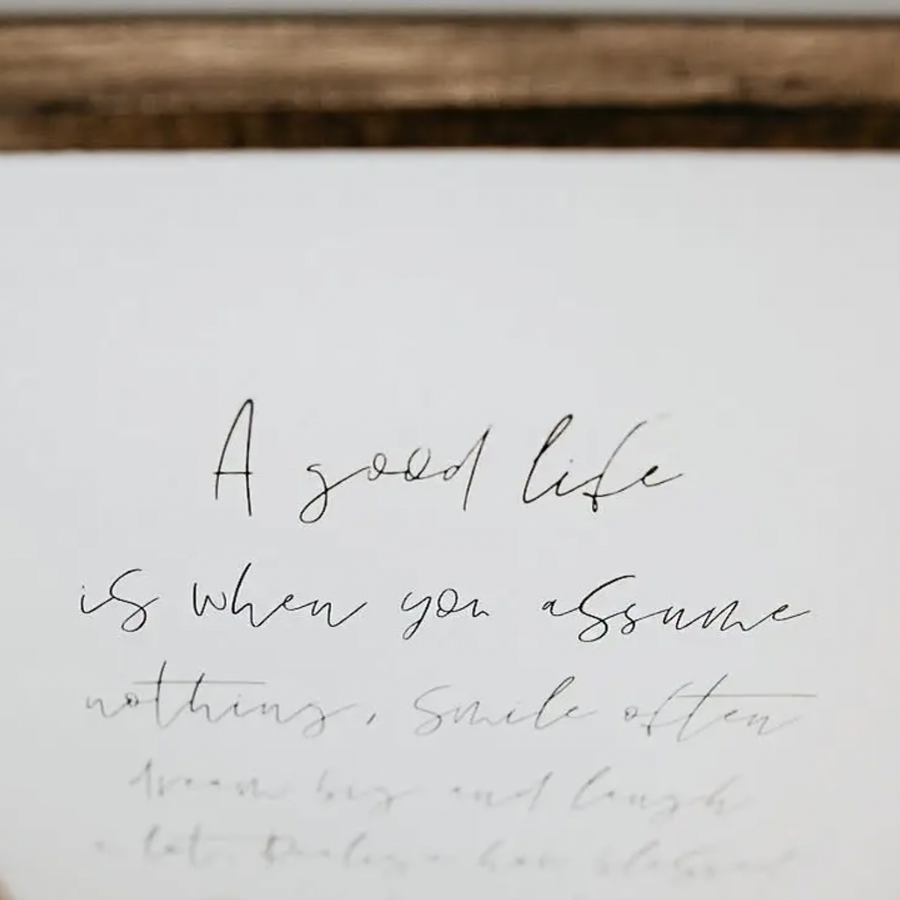 A good life
is when you assume
nothing, smile often
dream big and laugh
a lot. Realize how blessed